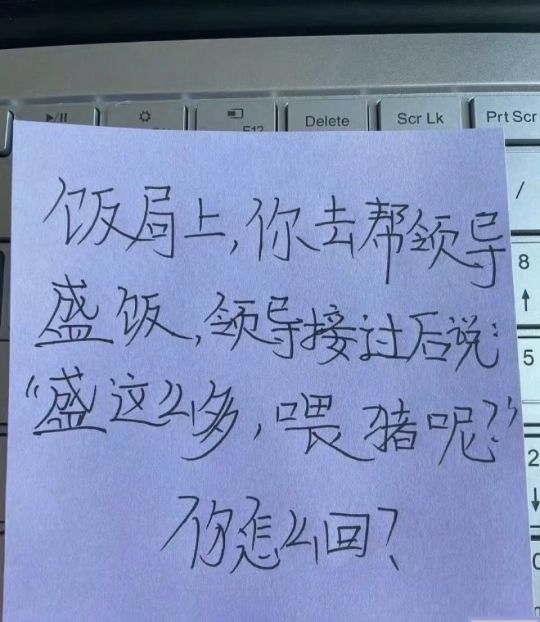 F12
Delete
Scr Lk
Prt Scr
/
8
5
2
饭局上,你去帮领导
盛饭,领导接过后说:
“盛这么多,喂猪呢?”
你怎么回?